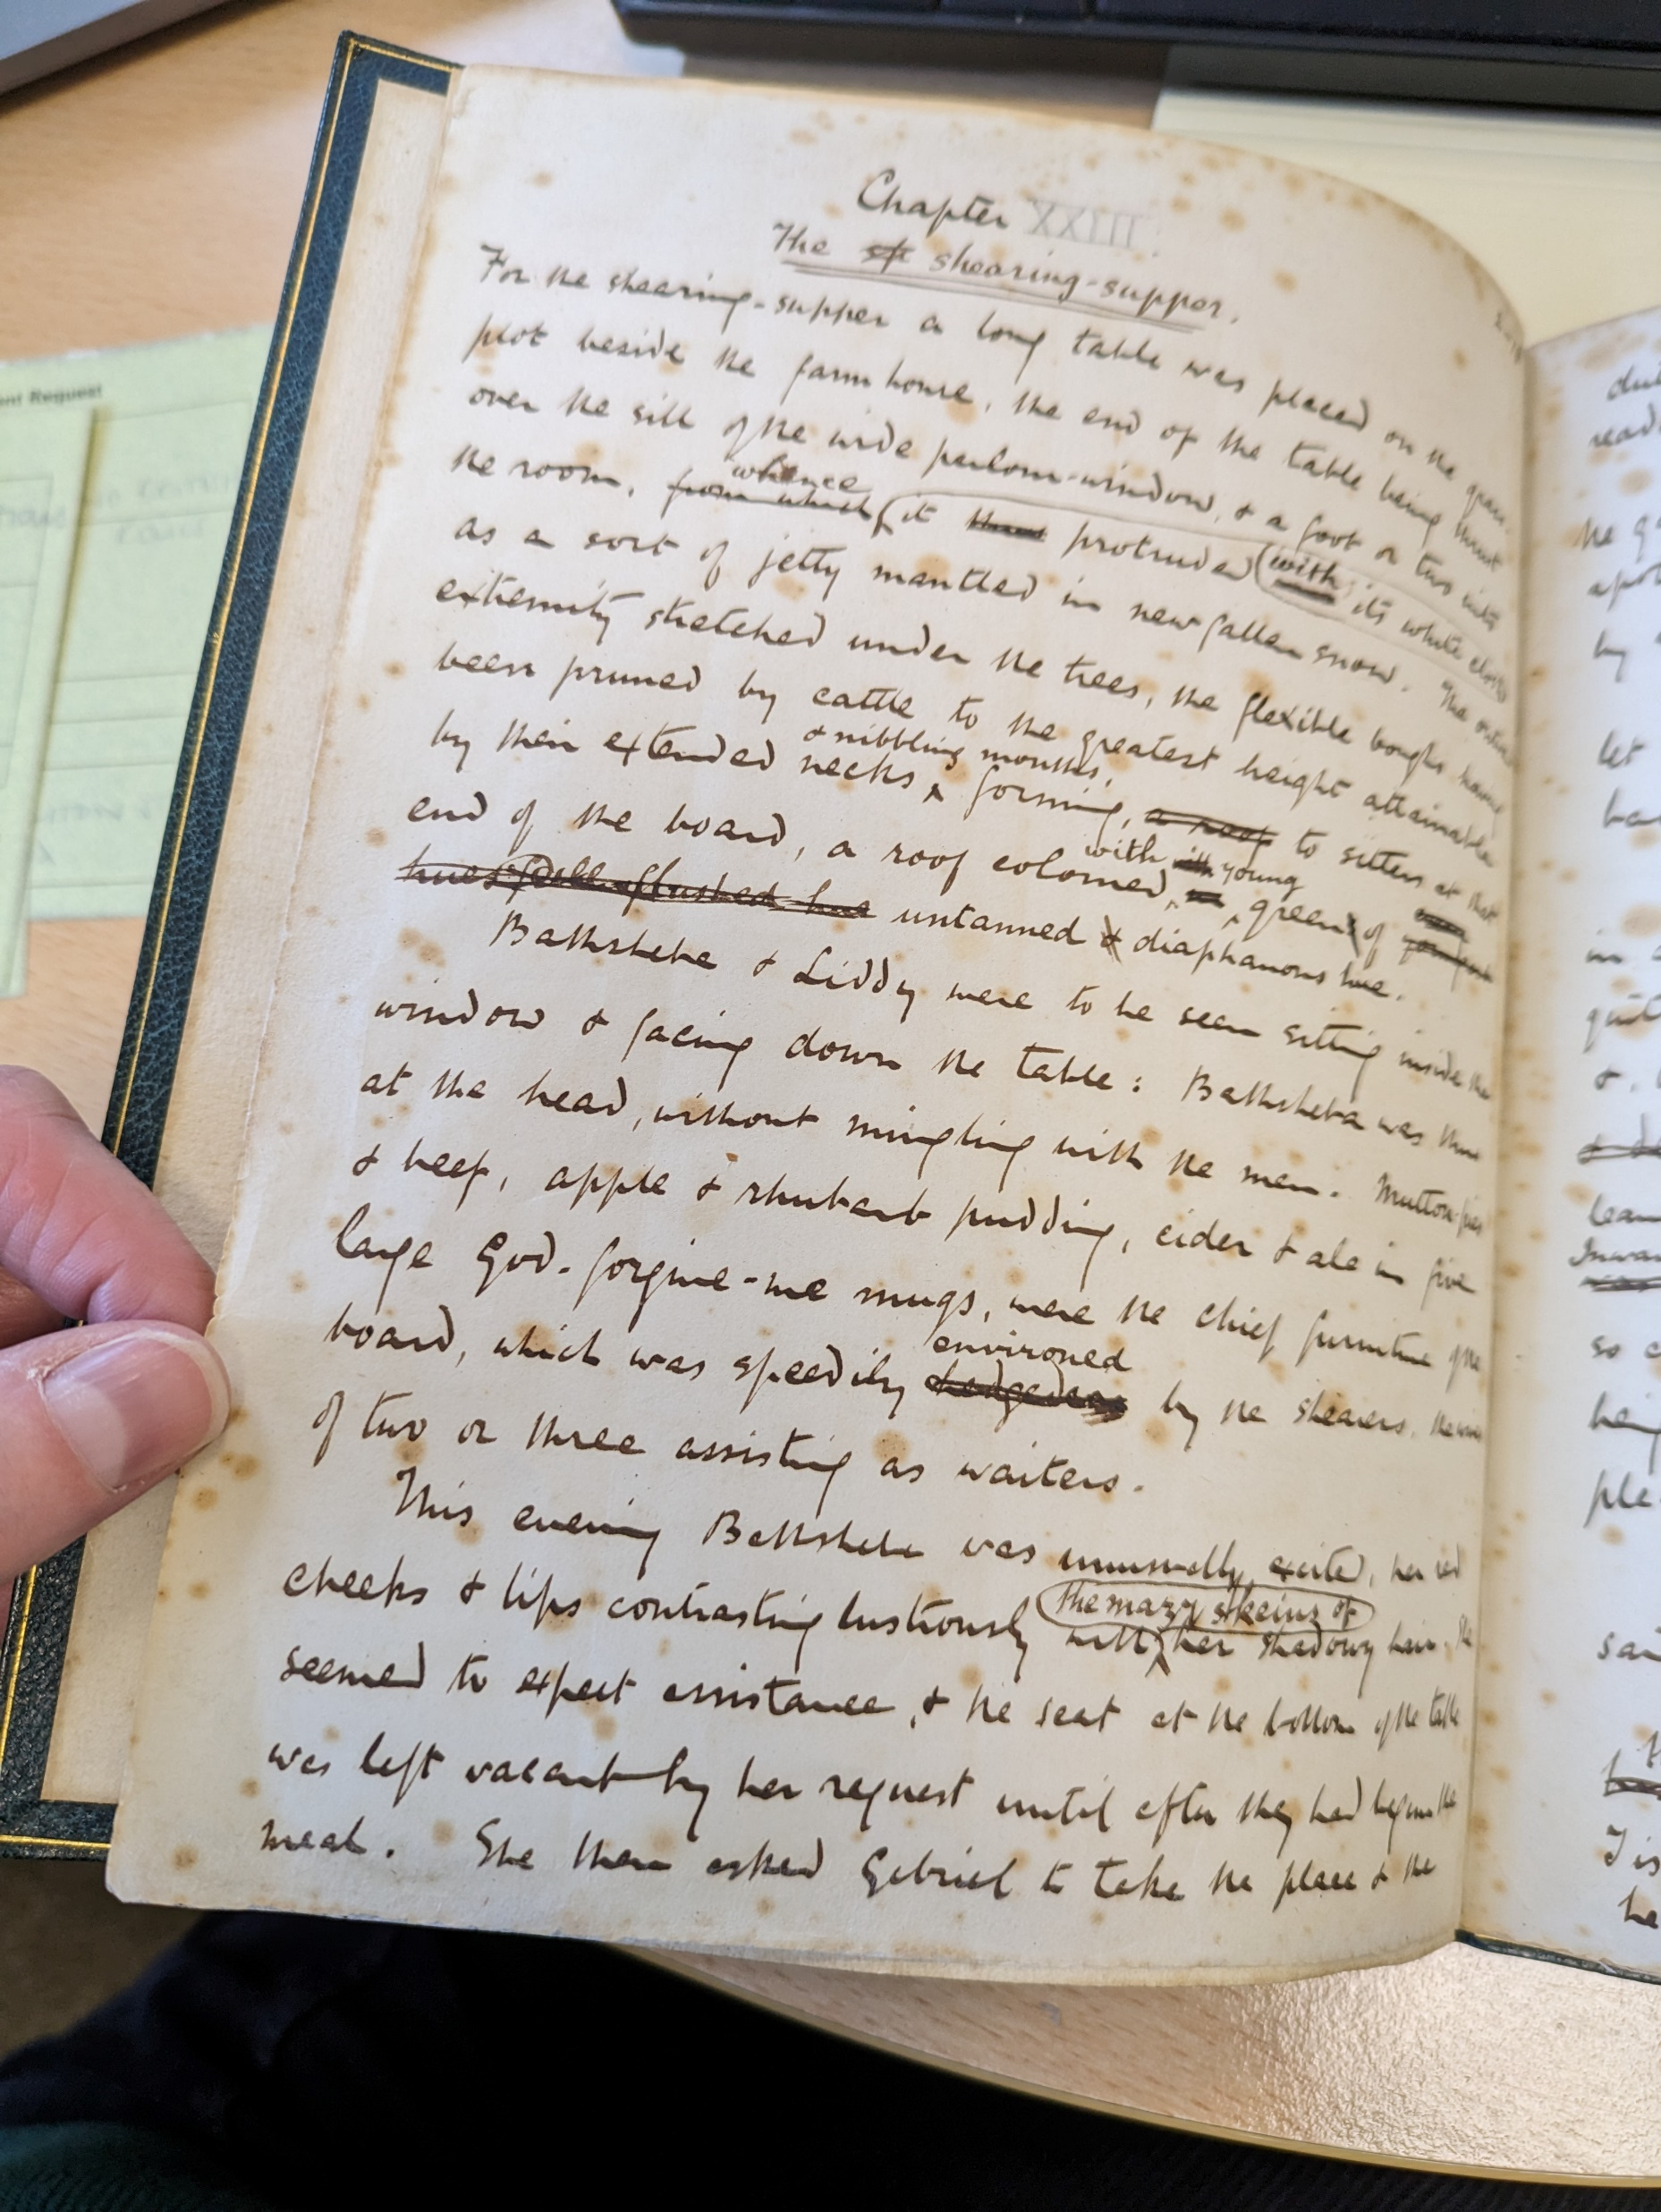 Chapter XXIII.
The st shearing-supper.
For the shearing-supper a long table was placed on the grass-
plot beside the farmhouse, the end of the table being thrust
over the sill of the wide parlour-window, & a foot or two into
whence
the room, from which it protruded with its white cloth
as a sort of jetty mantled in new fallen snow. The outer
extremity stretched under the trees, the flexible boughs having
been pruned by cattle to the greatest height attainable
& nibbling mouths,
by their extended necks forming, a roof to sitters at that
with young
end of the board, a roof coloured green of
hues flushed hue untanned & diaphanous hue.
Bathsheba & Liddy were to be seen sitting inside the
window & facing down the table: Bathsheba was thus
at the head, without mingling with the men. Mutton-pies
& beef, apple & rhubarb pudding, cider & ale in five
large God-forgive-me mugs, were the chief furniture of the
environed
board, which was speedily by the shearers, the wives
of two or three assisting as waiters.
This evening Bathsheba was unusually excited, her red
the mazy skeins of
cheeks & lips contrasting lustrously with her shadowy hair. She
seemed to expect assistance, & the seat at the bottom of the table
was left vacant by her request until after they had begun the
meal. She then asked Gabriel to take the place & the
read
let
in
quit
&.
lean
so
being
sai
I is
he
ent Request